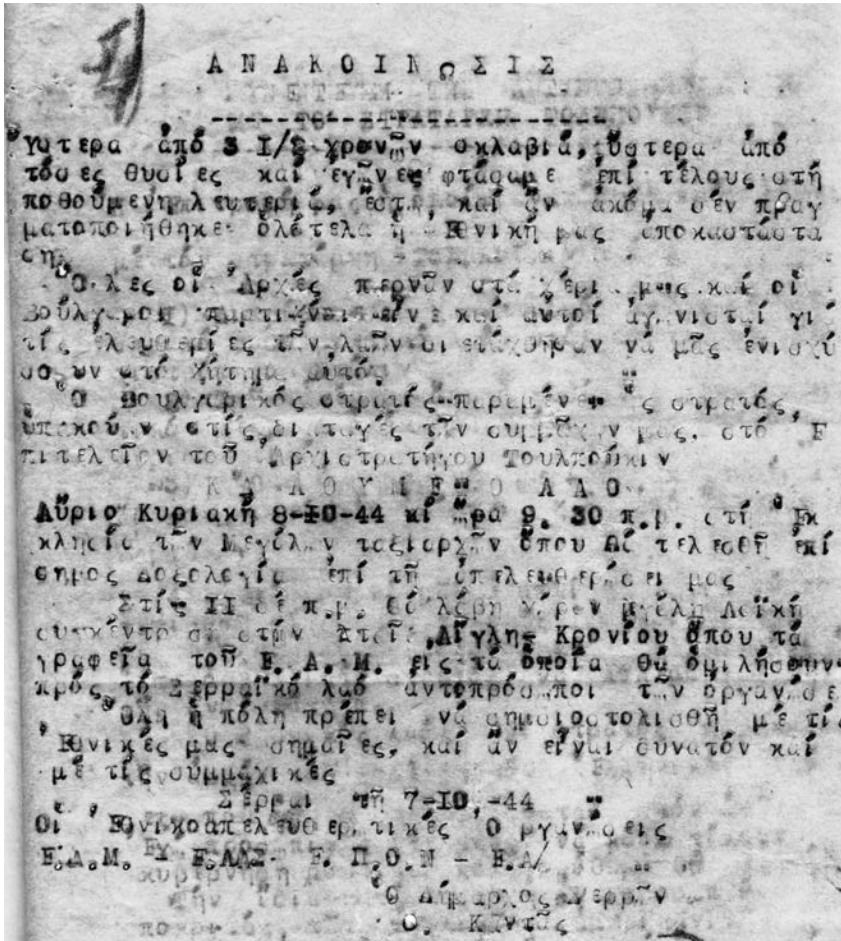 ΑΝΑΚΟΙΝΩΣΙΣ
Ύστερα ἀπό 3 I/2 χρονῶν σκλαβιά, ὕστερα ἀπό
τόσες θυσίες καί ἀγῶνες φτάσαμε ἐπί τέλους στή
ποθούμενη λευτεριά, ἔστω καί ἄν ἀκόμα δέν πραγ
ματοποιήθηκε ὁλότελα ἡ Ἐθνική μας ἀποκαστάστα
ση.
Ὅλες οἱ Ἀρχές περνᾶν στά χέρια μας καί οἱ
Βούλγαροι καί αὐτοί ἀγωνισταί γι
τίς ἐλευθερίες τῶν λαῶν ἐτάχθησαν νά μᾶς ἐνισχύ
σουν στό ζήτημα αὐτό.
Ὁ Βουλγαρικός στρατός παραμένει ὡς στρατός,
στίς διαταγές τῶν συμμάχων μας, στό Ἐ
πιτελεῖον τοῦ Ἀρχιστρατήγου Τουλπούκιν
ΚΑΛΟΥΜΕ ΟΛΟ ΛΑΟ
Αὔριο Κυριακή 8-10-44 κί ὥρα 9.30 π.μ. στή Ἐκ
κλησία τῶν Μεγάλων ταξιαρχῶν ὅπου θά τελεσθῆ ἐπί
σημος Δοξολογία ἐπί τῆ ἀπελευθερώσει μας
Στίς II δέ π.μ. θά λάβη χώραν μεγάλη Λαϊκή
συγκέντρωσι στήν Αἴγλη- Κρονίου ὅπου τά
γραφεῖα τοῦ Ε.Α.Μ. εις τά ὁποία θά ὁμιλήσουν
πρός τό Σερραϊκό λαό ἀντοπρόσωποι τῶν ὀργανώσε
Ὅλη ἡ πόλη πρέπει νά σημαιοστολισθῆ μέ τίς
Ἐθνικές μας σημαῖες, καί ἄν εἶναι δυνατόν καί
μέ τίς συμμαχικές
Σέρραι τῆ 7-10-44
Οἱ Ἐθνικοαπελευθερωτικές Ὀργανώσεις
Ε.Α.Μ. - ΕΛΑΣ- Ε.Π.Ο.Ν - Ε.Α/
Ὁ Δήμαρχος Σερρῶν